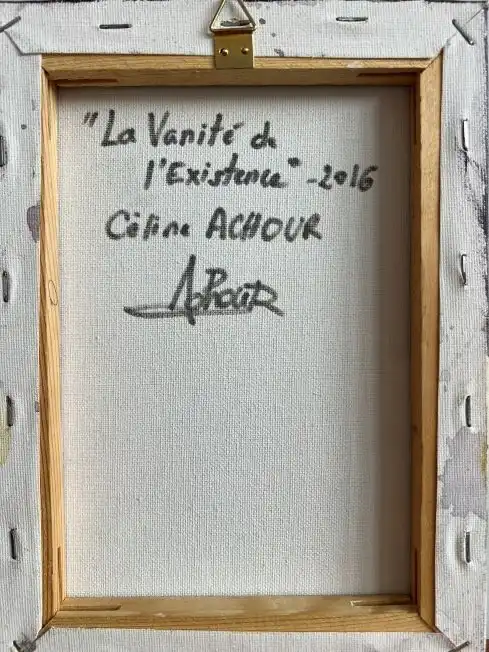 "La Vanité de
l'Existence" - 2016
Céline ACHOUR